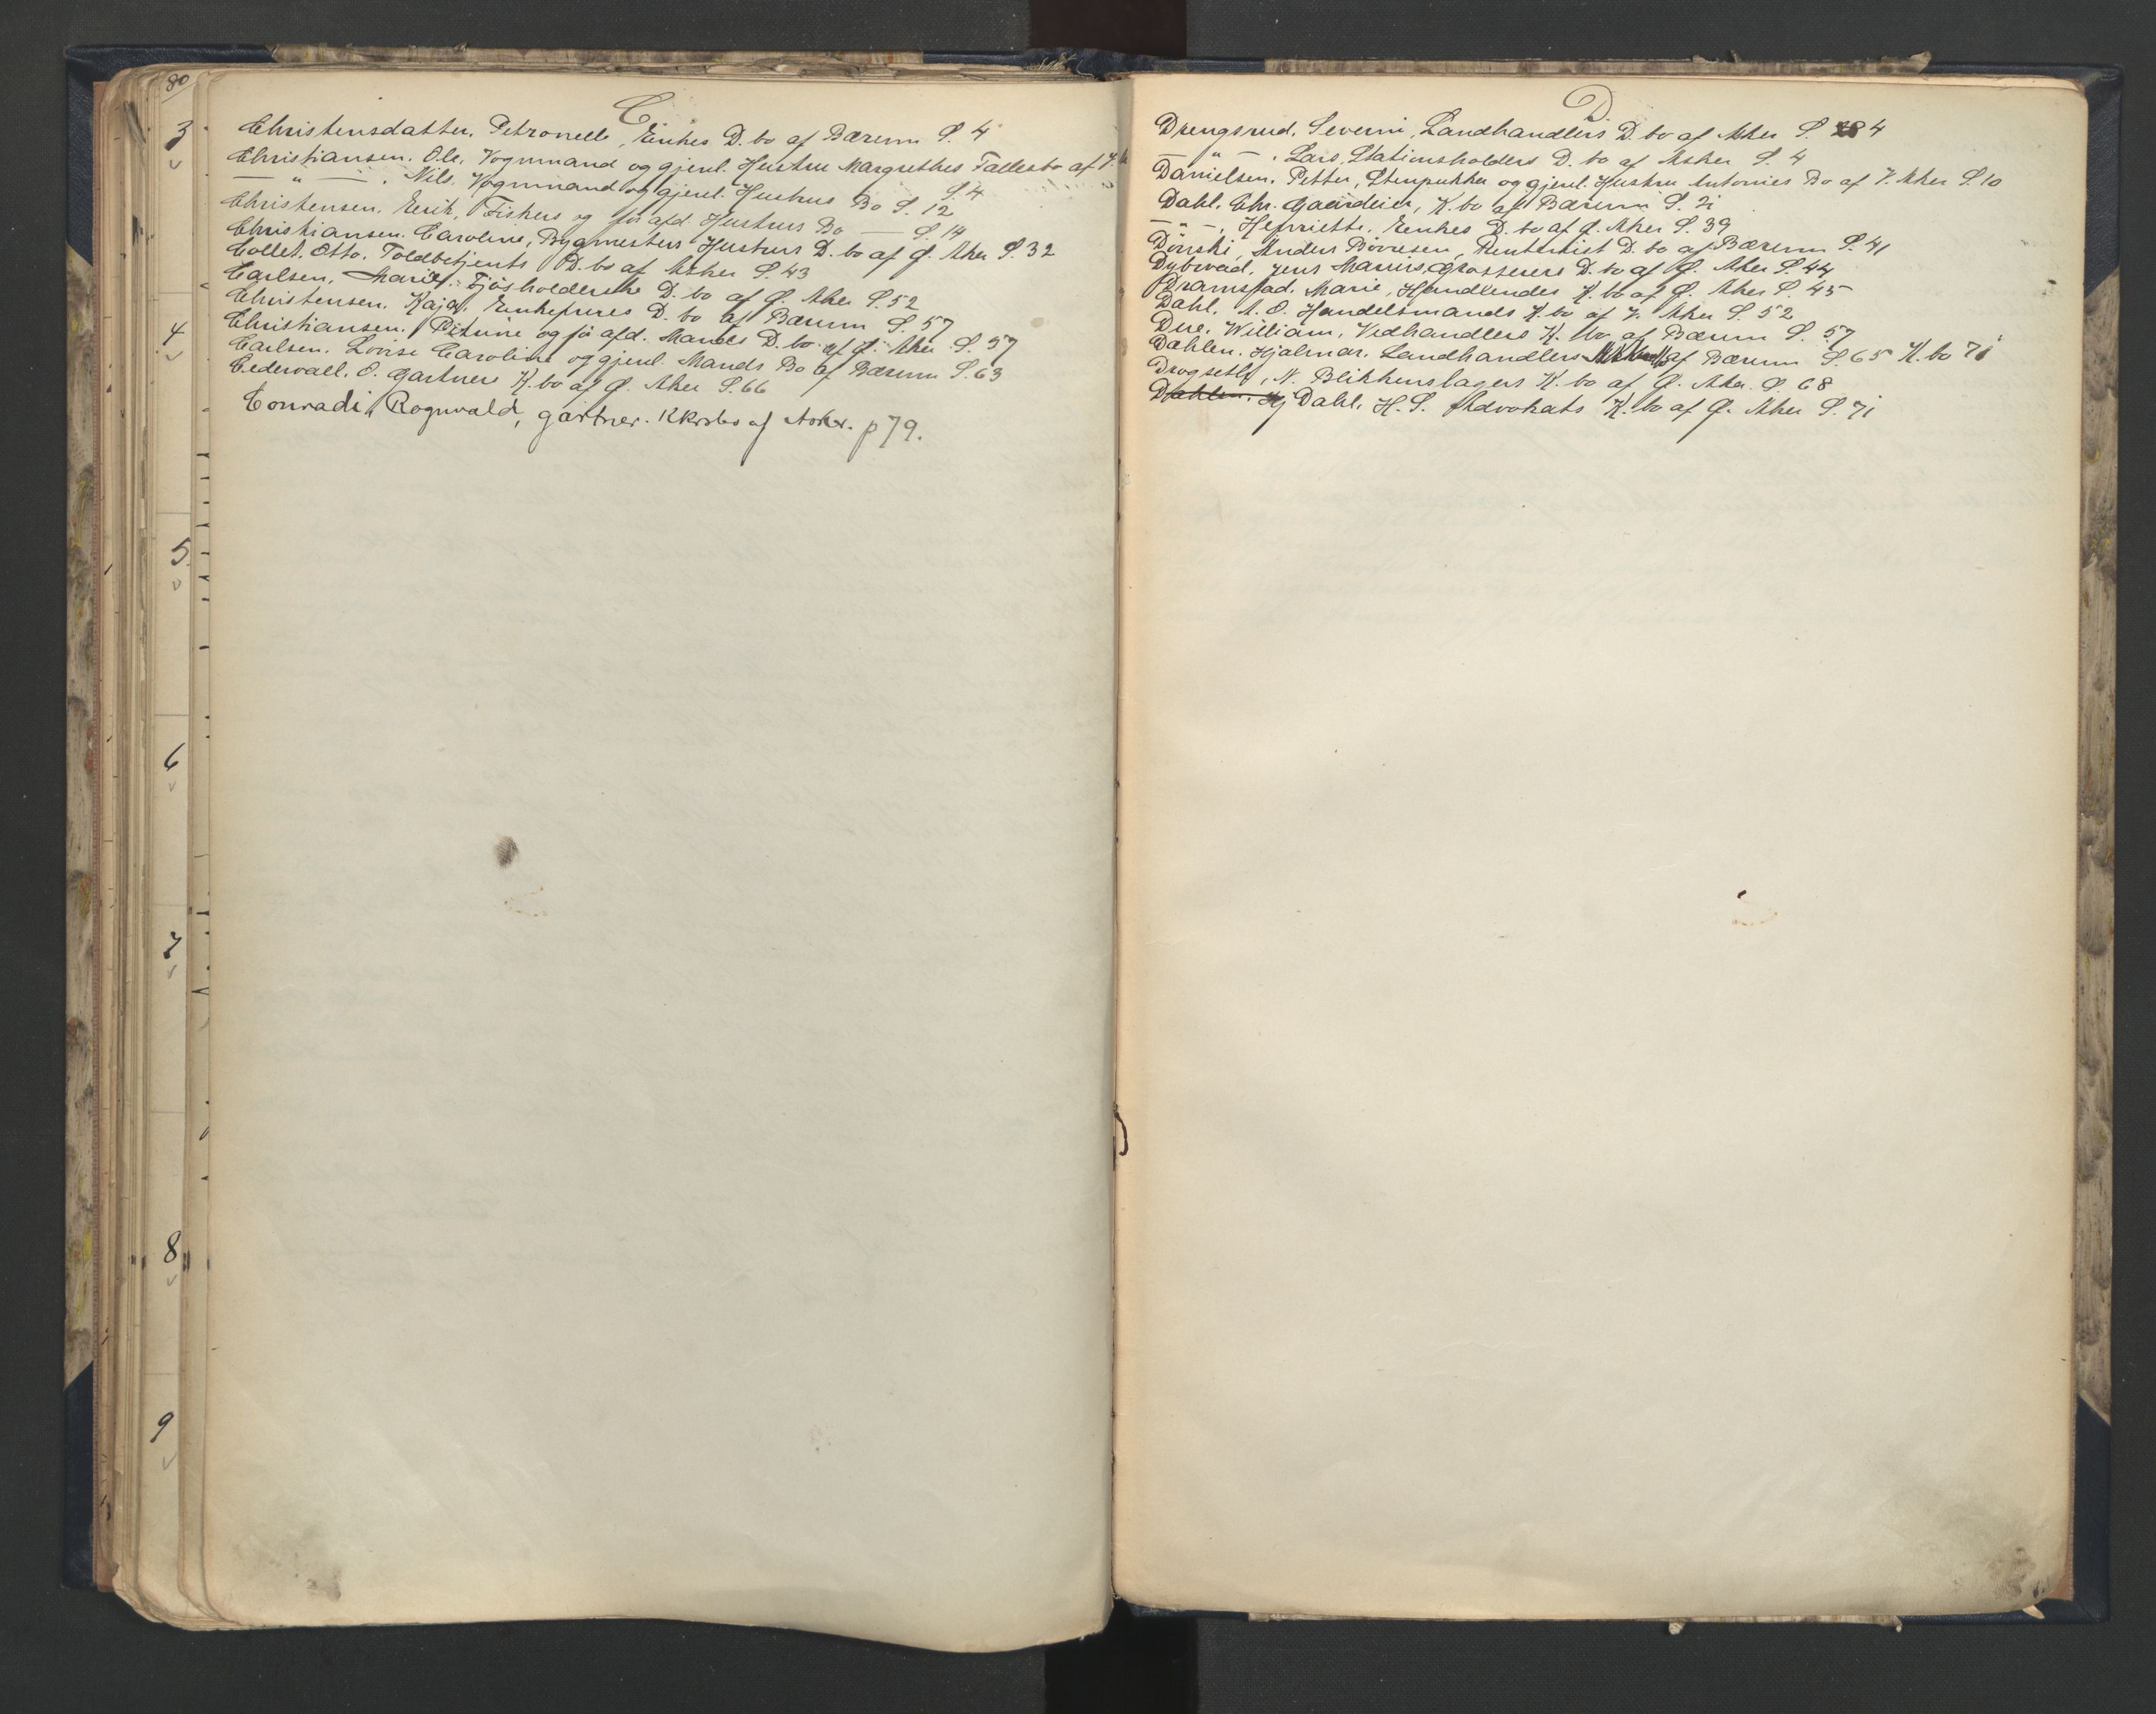 80
3
4
5
6
7
8
9
C
Christensdatter. Petronelle, Enkes D. bo af Bærum S. 4
Christiansen. Ole. Vognmand og gjenl. Hustru Margrethes Fællesbo af V.
— " — . Nils. Vognmand og gjenl. Hustrus Bo S. 4
Christensen. Erik, Fiskers og før afd. Hustrus Bo S. 12
Christiansen. Caroline, Bygmesters Hustrus D. bo af Ø. Aker S. 32
Collet. Otto. Toldbetjents D. bo af Asker S. 43
Carlsen, Marie, Fjøsholderske D. bo af Ø. Aker S. 52
Christensen. Kaja, Enkefrues D. bo af Bærum S. 57
Christiansen. Petrine og før afd. Mands D. bo af Ø. Aker S. 57
Carlsen. Lovise Caroline og gjenl. Mands Bo af Bærum S. 63
Cederwall. O. Gartners K. bo af Ø. Aker S. 66
Conradi, Rognvald, gartner. Kkrsbo af Asker. p 79.
D.
Drengsrud. Severin, Landhandlers D. bo af Asker S. 4
— " — . Lars, Stationsholders D. bo af Asker S. 4
Danielsen. Petter, Stenpukker og gjenl. Hustru Antonies Bo af V. Aker S. 10
Dahl. Chr. Gaardeier, K. bo af Bærum S. 21
— " — , Henriette. Enkes D. bo af Ø. Aker S. 39
Dönski, Anders Börresen, Rentenist D. bo af Bærum S. 41
Dybwad, Jens Marius, Grosserers D. bo af Ø. Aker S. 44
Dramstad. Marie, Handlendes K. bo af Ø. Aker S. 45
Dahl. A. O. Handelsmands K. bo af V. Aker S. 52
Due. William, Vedhandlers K. bo af Bærum S. 57
Dæhlen. Hjalmar. Landhandlers af Bærum S. 65 K. bo 71
Drogseth, N. Blikkenslagers K. bo af Ø. Aker S. 68
Dæhlen. Hj Dahl. H. S. Advokats K. bo af Ø. Aker S. 71